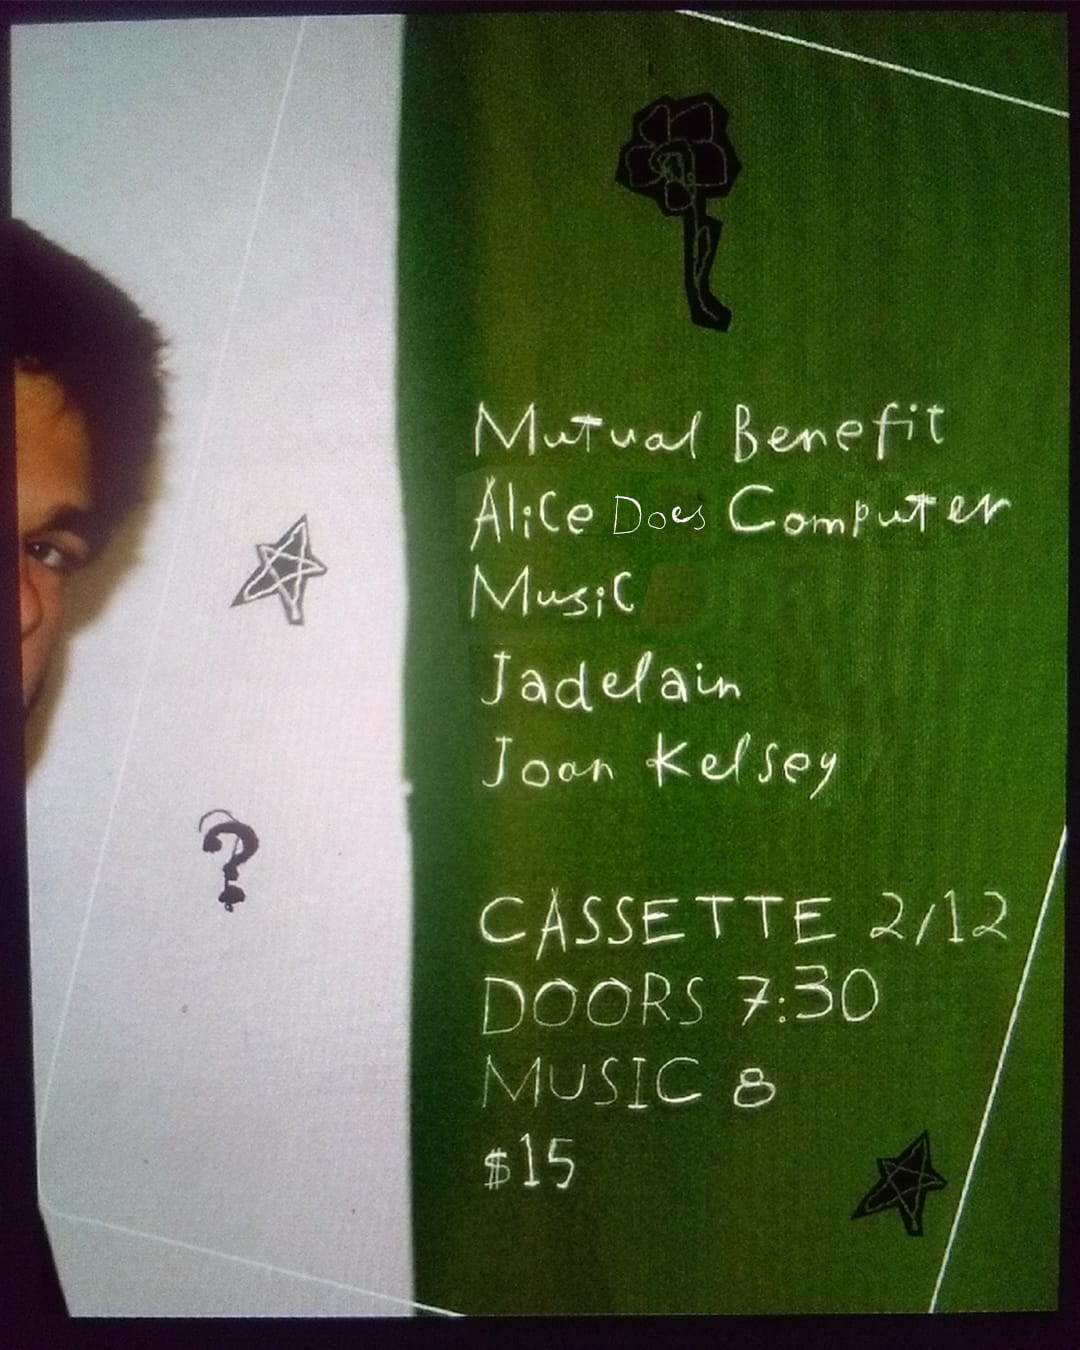 Mutual Benefit
Alice Does Computer
Music
Jadelain
Joan Kelsey
CASSETTE 2/12
DOORS 7:30
MUSIC 8
$15
?